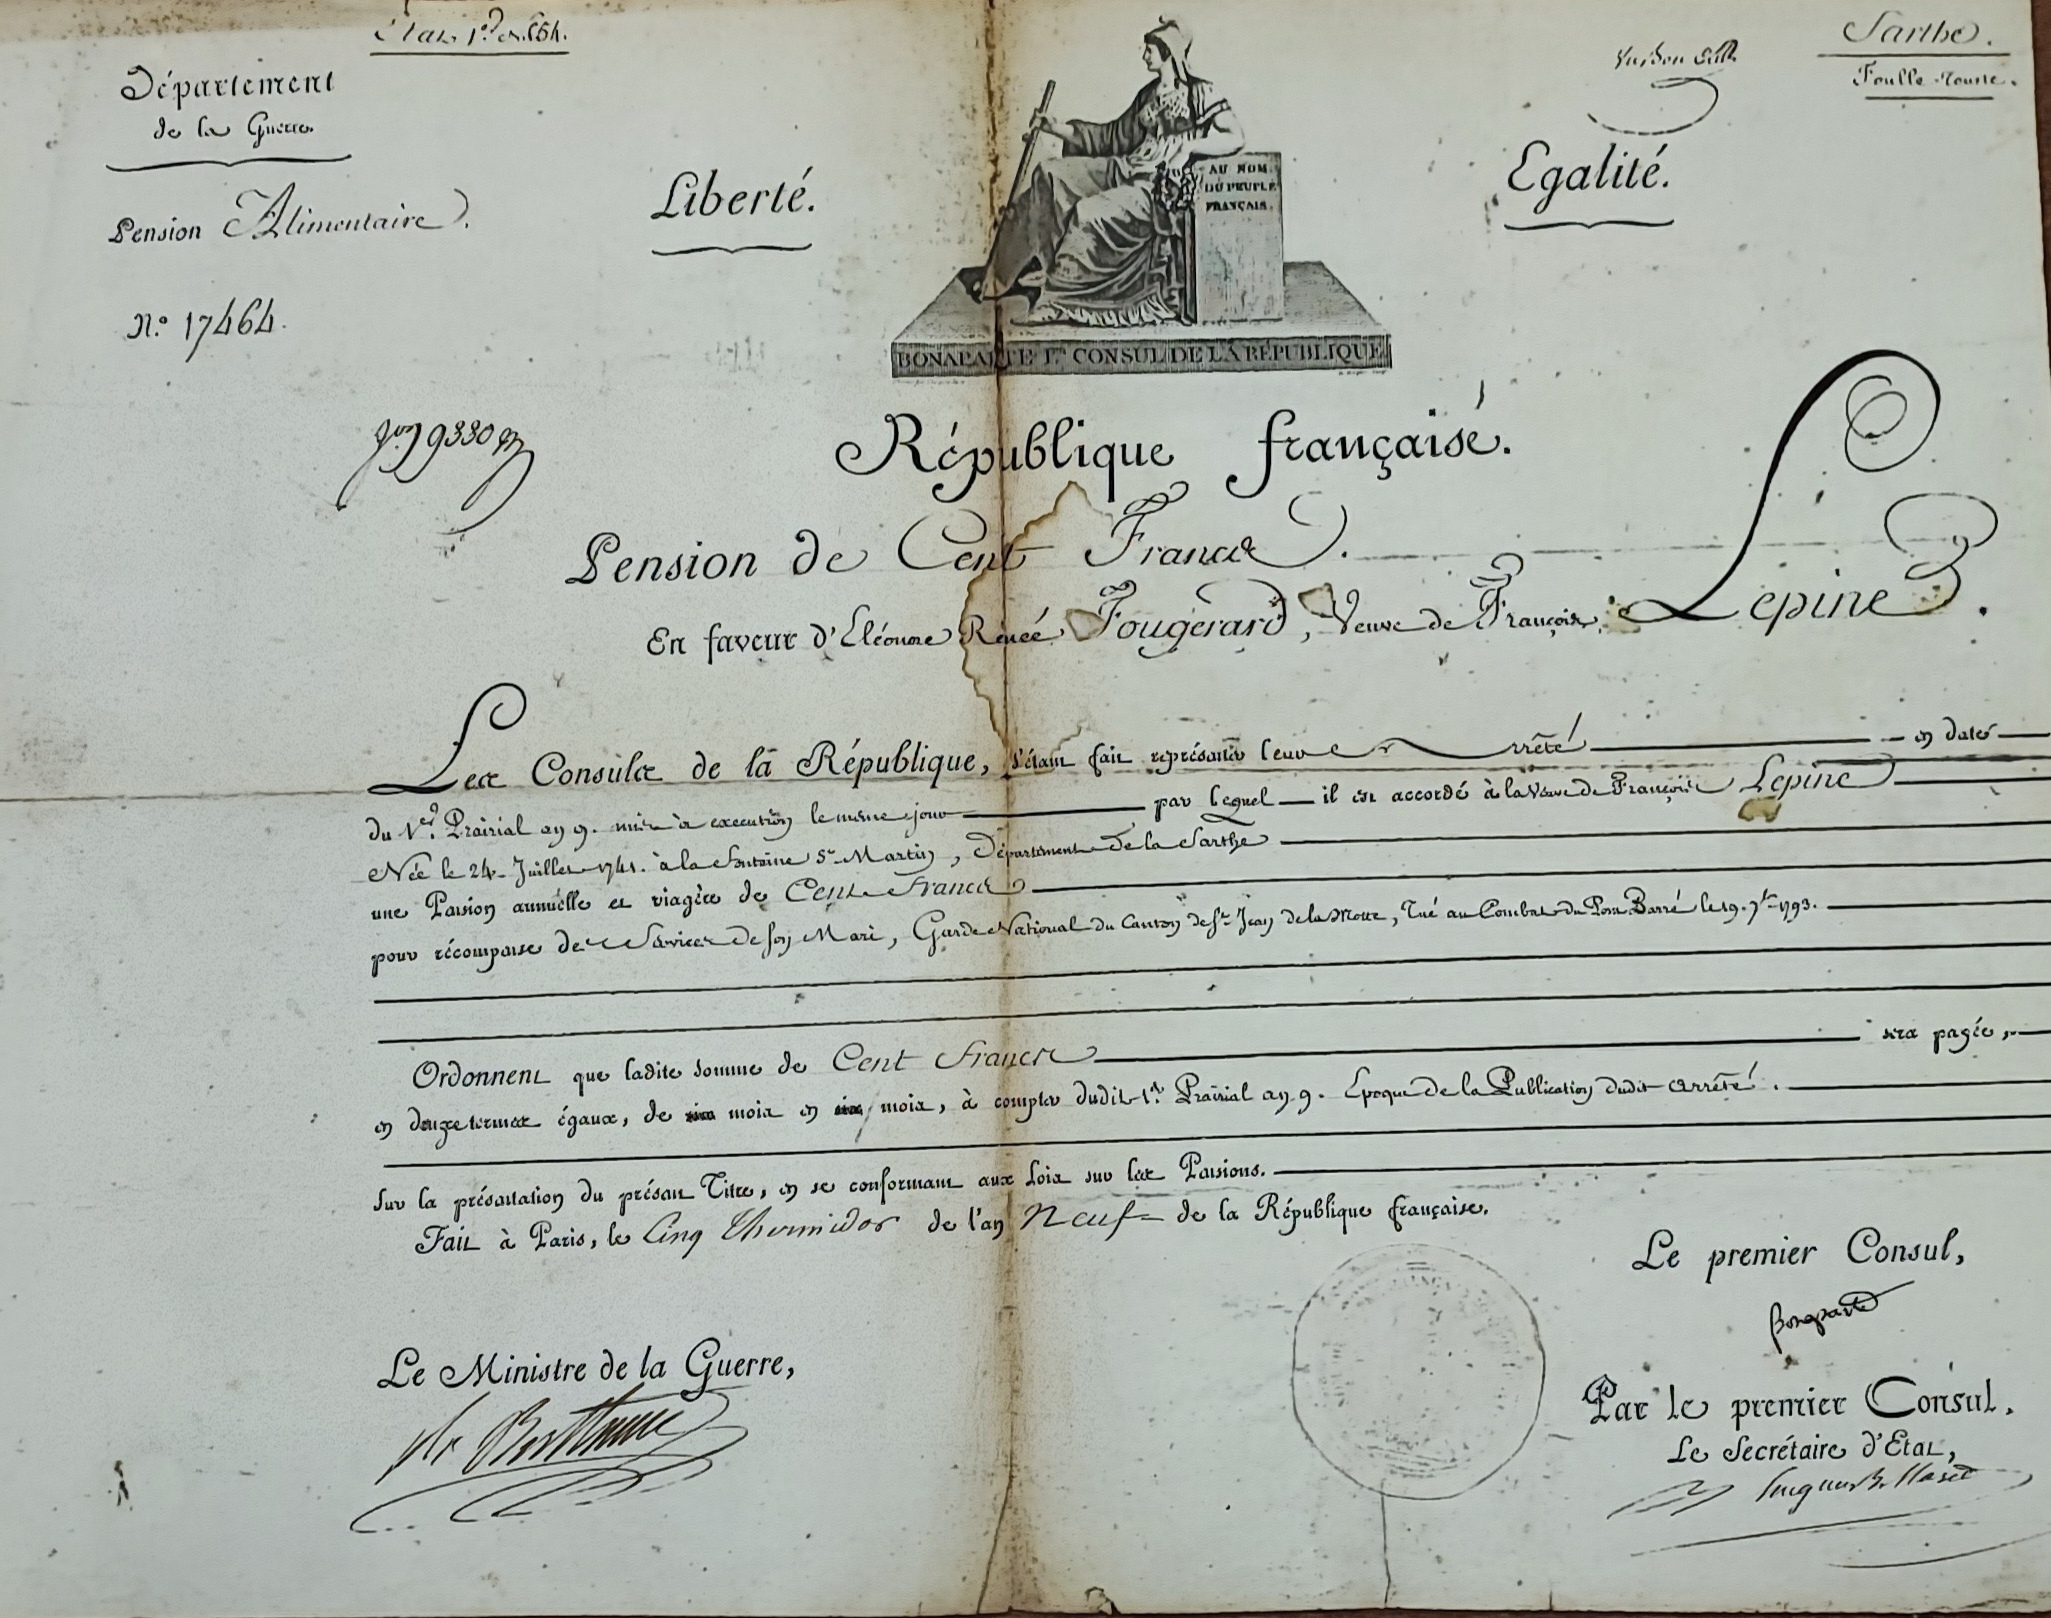 Sarthe.
Foulle tourte.
Département
de la Guerre
Pension Alimentaire.
N.o 17464.
Liberté.
Egalité.
AU NOM
DU PEUPLE
FRANÇAIS.
BONAPARTE 1.er CONSUL DE LA RÉPUBLIQUE
9330
République française.
Pension de Cent Francs.
En faveur d'Eléonore Renée Fougerard, Veuve de François Lepine.
Les Consuls de la République, s'étant fait représenter leur arrêté en date
du 1.er Prairial an 9. mis à execution le même jour par lequel il est accordé à la Veuve de François Lepine
Née le 24 Juillet 1741. à la fontaine St. Martin, Département de la Sarthe
une Pension annuelle et viagère de Cent Francs
pour récompense des Services de son Mari, Garde National du Canton de St. Jean de la Motte, Tué au Combat du Pont Barré le 19. 7bre 1793.
Ordonnent que ladite somme de Cent francs sera payée,
en deux termes égaux, de six mois en six mois, à compter dudit 1.er Prairial an 9. Epoque de la Publication dudit arrêté.
sur la présentation du présent Titre, en se conformant aux Loix sur les Pensions.
Fait à Paris, le Cinq Thermidor de l'an Neuf de la République française.
Le premier Consul,
Bonaparte
Le Ministre de la Guerre,
Par le premier Consul,
Le Secrétaire d'Etat,
Hugues B. Maret